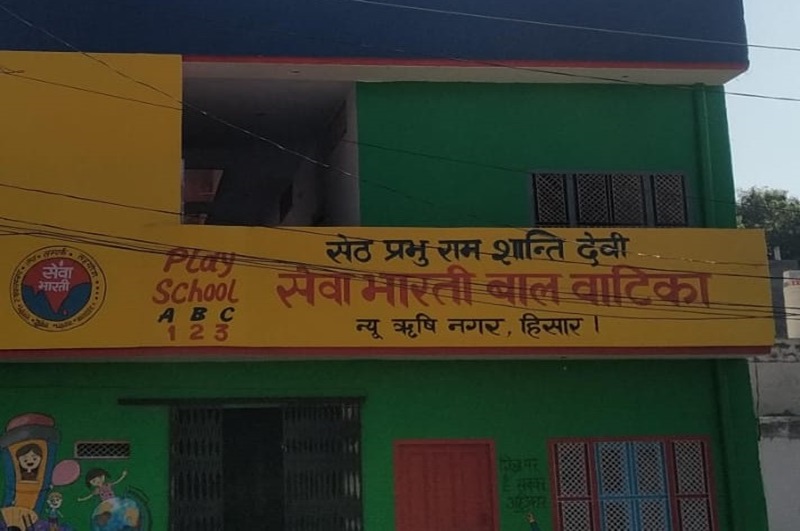 सेवा
भारती
Play
School
A B C
1 2 3
सेठ प्रभु राम शान्ति देवी
सेवा भारती बाल वाटिका
न्यू ऋषि नगर, हिसार।